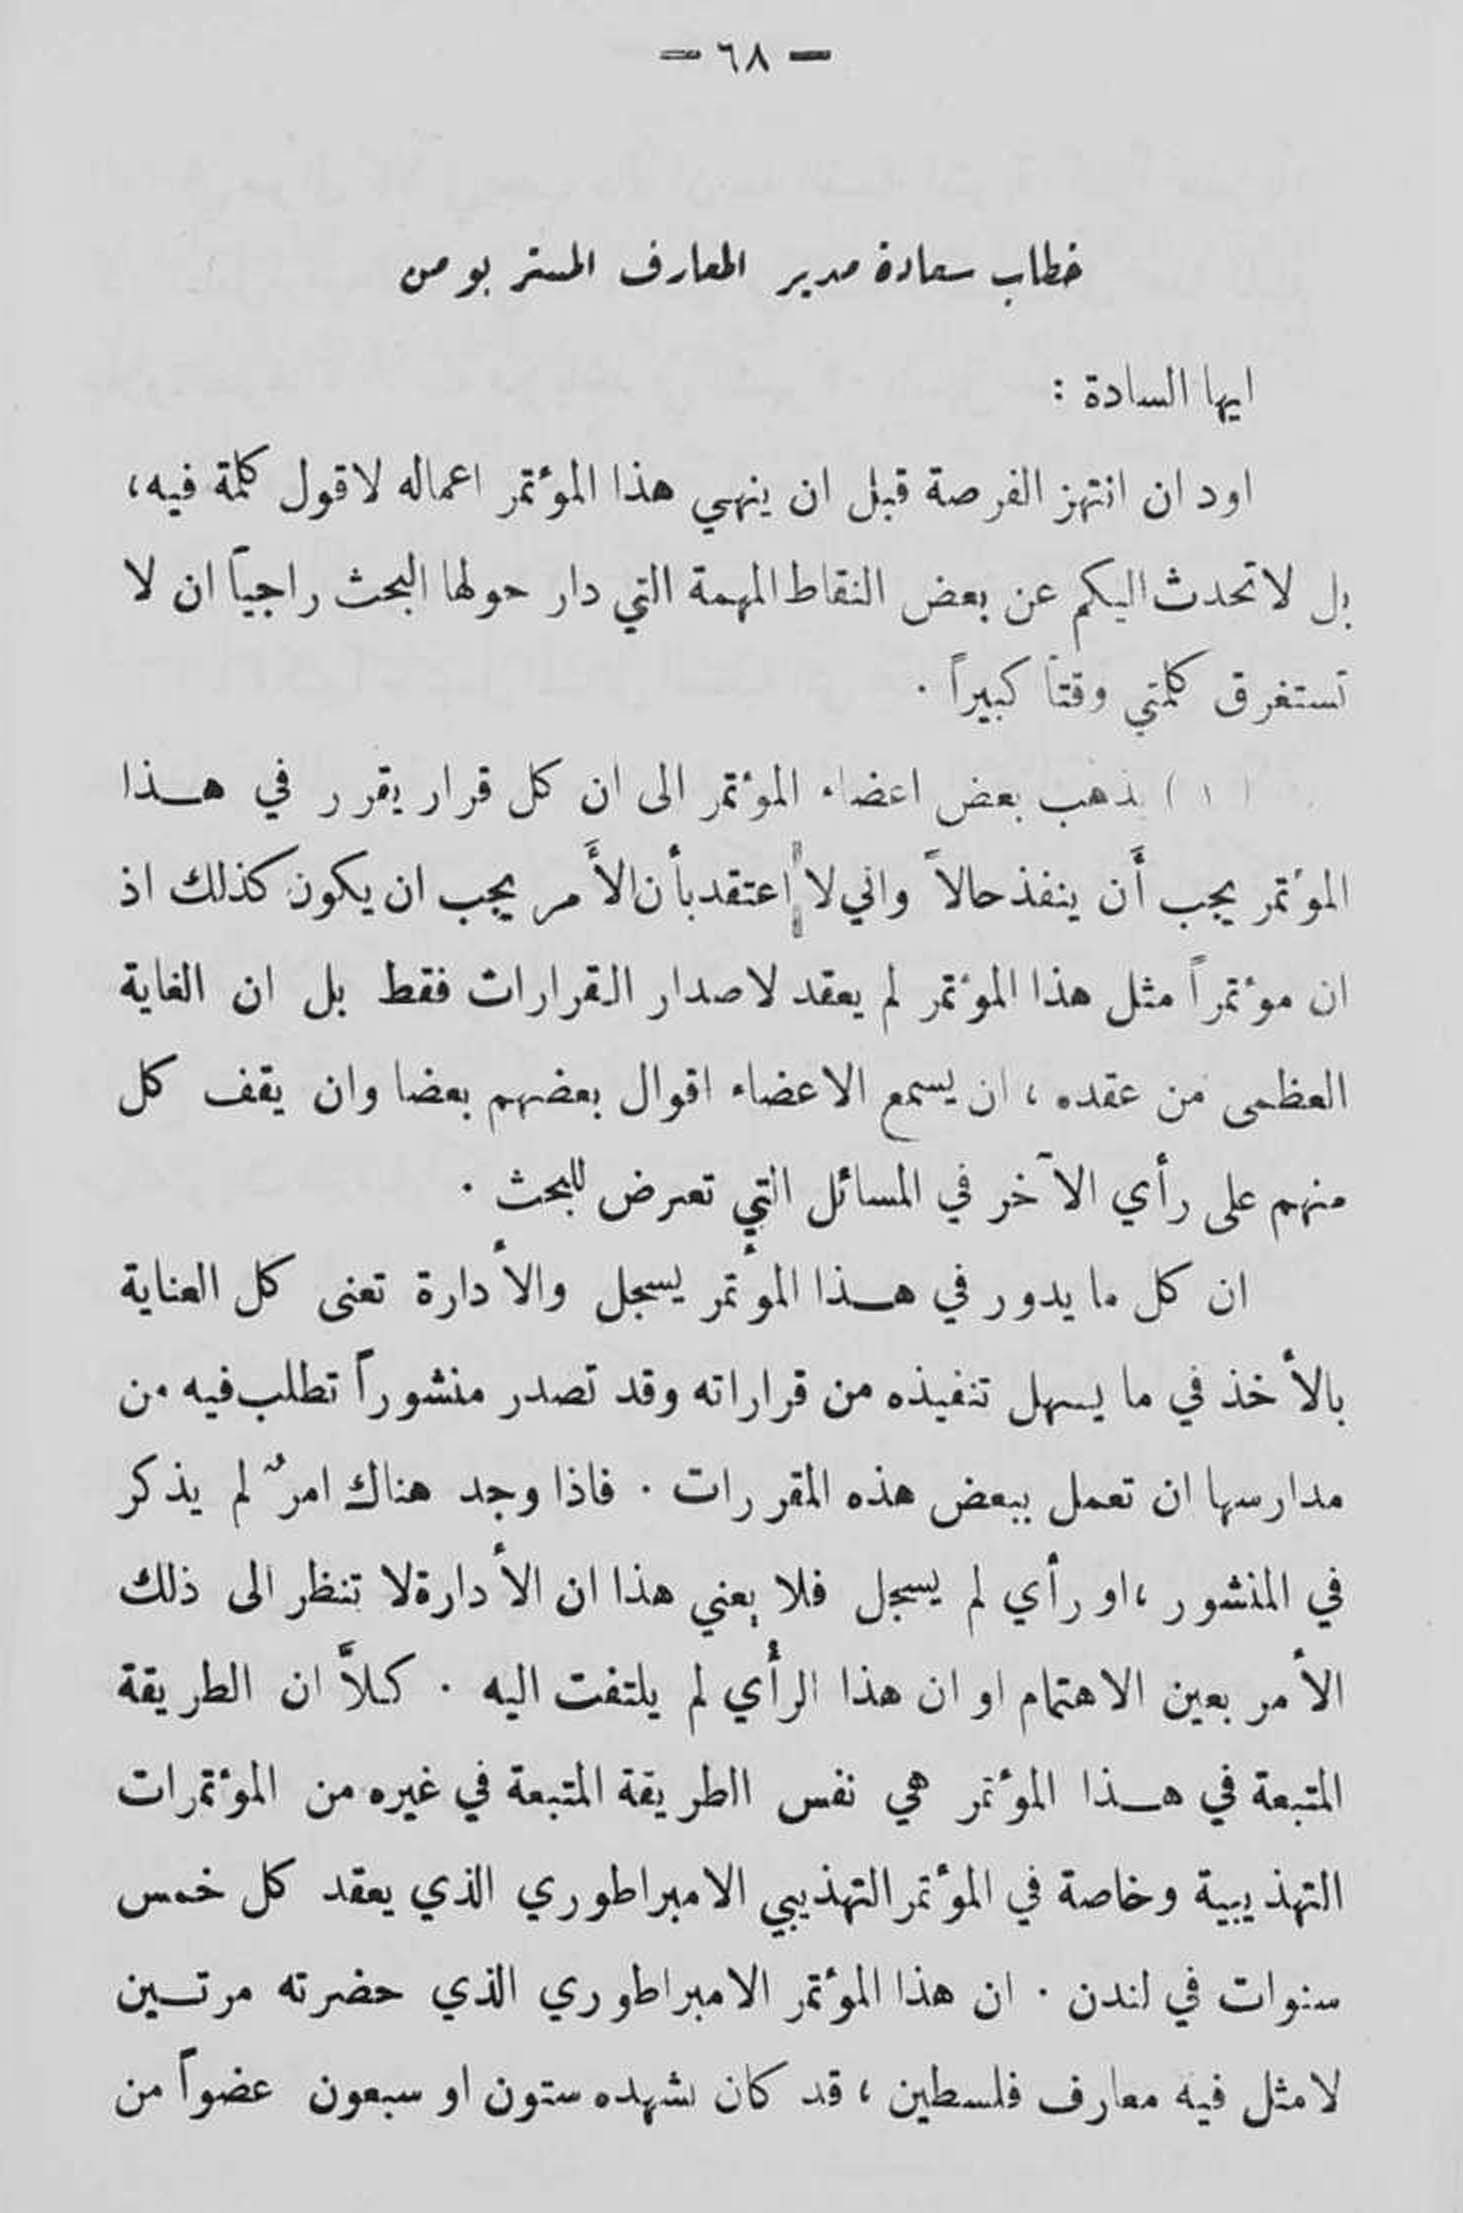 — ٦٨ —
خطاب سعادة مدير المعارف المستر بومن
ايها السادة :
اود ان انتهز الفرصة قبل ان ينهي هذا المؤتمر اعماله لاقول كلمة فيه،
بل لاتحدث اليكم عن بعض النقاط المهمة التي دار حولها البحث راجياً ان لا
تستغرق كلمتي وقتاً كبيراً .
( ١ ) يذهب بعض اعضاء المؤتمر الى ان كل قرار يقرر في هـذا
المؤتمر يجب أَن ينفذ حالاً واني لا اعتقد بأن الأَمر يجب ان يكون كذلك اذ
ان مؤتمراً مثل هذا المؤتمر لم يعقد لاصدار القرارات فقط بل ان الغاية
العظمى من عقده ، ان يسمع الاعضاء اقوال بعضهم بعضا وان يقف كل
منهم على رأي الآخر في المسائل التي تعرض للبحث .
ان كل ما يدور في هـذا المؤتمر يسجل والأدارة تعنى كل العناية
بالأخذ في ما يسهل تنفيذه من قراراته وقد تصدر منشوراً تطلب فيه من
مدارسها ان تعمل ببعض هذه المقررات . فاذا وجد هناك امرٌ لم يذكر
في المنشور ، او رأي لم يسجل فلا يعني هذا ان الأدارة لا تنظر الى ذلك
الأمر بعين الاهتمام او ان هذا الرأي لم يلتفت اليه . كلاَّ ان الطريقة
المتبعة في هـذا المؤتمر هي نفس االطريقة المتبعة في غيره من المؤتمرات
التهذيبية وخاصة في المؤتمر التهذيبي الامبراطوري الذي يعقد كل خمس
سنوات في لندن . ان هذا المؤتمر الامبراطوري الذي حضرته مرتـين
لامثل فيه معارف فلسطين ، قد كان يشهده ستون او سبعون عضواً من